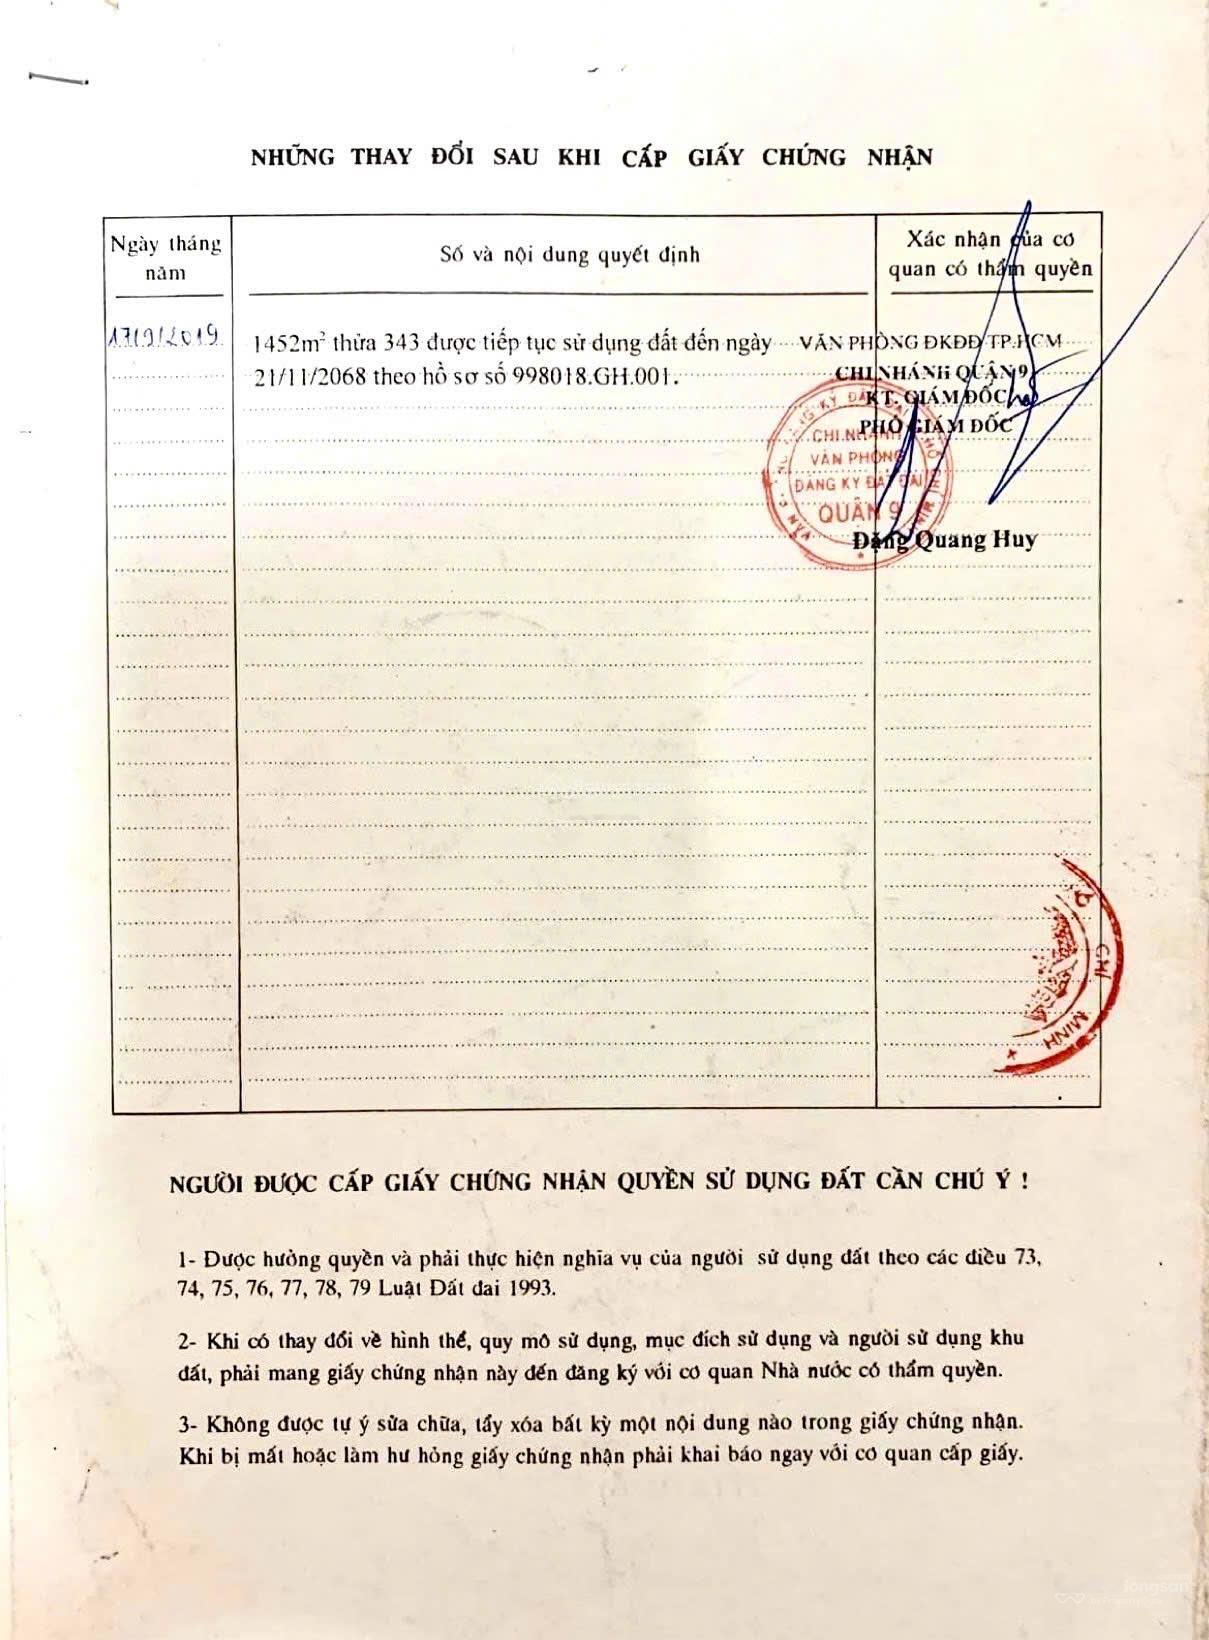 NHỮNG THAY ĐỔI SAU KHI CẤP GIẤY CHỨNG NHẬN
Ngày tháng
năm
Số và nội dung quyết định
Xác nhận của cơ
quan có thẩm quyền
17/9/2019
1452m² thửa 343 được tiếp tục sử dụng đất đến ngày
21/11/2068 theo hồ sơ số 998018.GH.001.
VĂN PHÒNG ĐKĐĐ TP.HCM
CHI NHÁNH QUẬN 9
KT. GIÁM ĐỐC
PHÓ GIÁM ĐỐC
CHI NHÁNH
VĂN PHÒNG
ĐĂNG KÝ ĐẤT ĐAI
QUẬN 9
Đặng Quang Huy
CHÍ MINH
NGƯỜI ĐƯỢC CẤP GIẤY CHỨNG NHẬN QUYỀN SỬ DỤNG ĐẤT CẦN CHÚ Ý !
1- Được hưởng quyền và phải thực hiện nghĩa vụ của người sử dụng đất theo các điều 73,
74, 75, 76, 77, 78, 79 Luật Đất đai 1993.
2- Khi có thay đổi về hình thể, quy mô sử dụng, mục đích sử dụng và người sử dụng khu
đất, phải mang giấy chứng nhận này đến đăng ký với cơ quan Nhà nước có thẩm quyền.
3- Không được tự ý sửa chữa, tẩy xóa bất kỳ một nội dung nào trong giấy chứng nhận.
Khi bị mất hoặc làm hư hỏng giấy chứng nhận phải khai báo ngay với cơ quan cấp giấy.